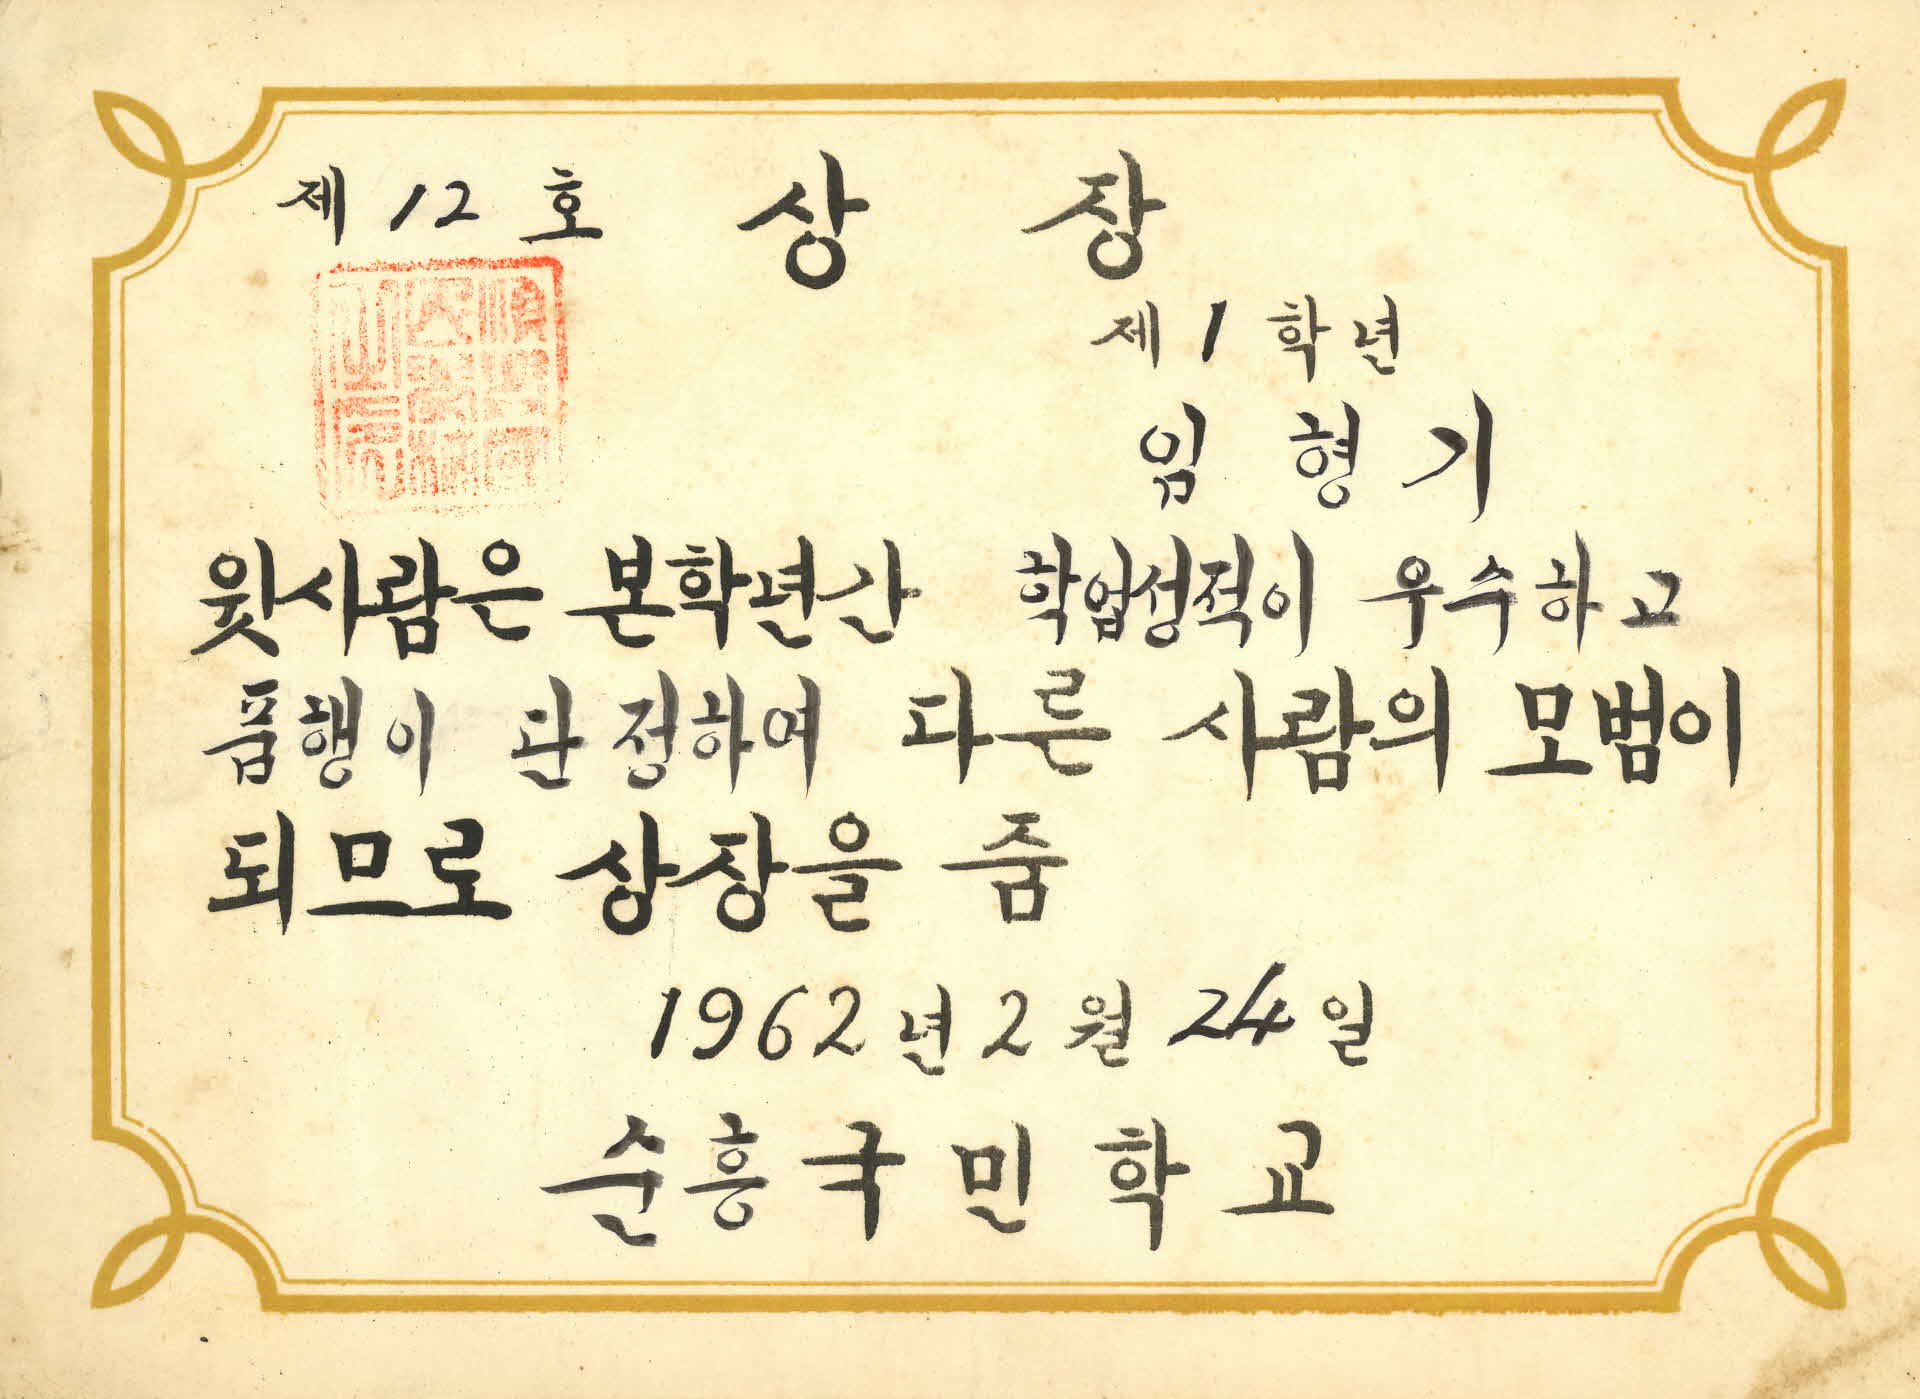 제 12 호 상 장
제 1 학년
임 형 기
윗사람은 본학년간 학업성적이 우수하고
품행이 단정하여 다른 사람의 모범이
되므로 상장을 줌
1962년 2월 24일
순흥국민학교